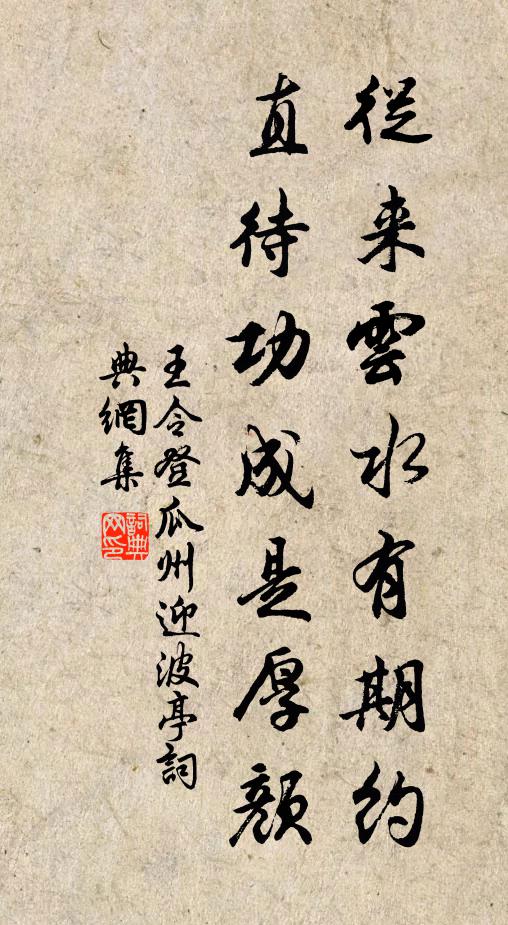 從来雲水有期約
直待功成是厚顏
王令登瓜州迎波亭詞
典網集
詞典
网印